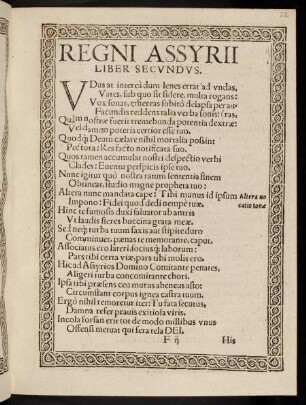 REGNI ASSYRII
LIBER SECVNDVS.
VDus at interea dum lenes errat ad vndas,
Vates, sub quo sit sidere, multa rogans:
Vox sonat, ethereas subitò delapsa per auras,
Facundis reddens talia verba sonis:
Quàm nostræ fuerit tremebunda potentia dextræ:
Vel damno poteris certior esse tuo.
Quod Deum cælare nihil mortalia possint
Pectora: Res facto notificata suo.
Quos tamen accumulat nostri despectio verbi
Clades: Euentu perspicis ipse meo.
Nunc igitur quò nostra ruant sententia finem
Obuincat, studio magne propheta tuo:
Altera nunc mandata cape: Tibi munus id ipsum
Impono: Fidei quod dedi nempe tuæ.
Altera vo
catio Ionæ
Hinc te fumosis duxi saluator ab antris
Vt laudis fieres buccina grata meæ.
Sed nec turba tuum saxis aut stipite duro
Comminuet, pænas te memorante, caput.
Associatus ero lateri socius laborum:
Pars tibi certa viæ, pars tibi molis ero.
Hic ad Assyrios Domino Comitante penates,
Aligeri turba concomitante chori.
Ipsa tibi præsens ceu murus aheneus asto:
Circumstant corpus ignea castra tuum.
Ergò nihil remoretur iter: Tu fata secutus,
Damna refer prauis exitiosa viris.
Incola forsan erit tot de modo millibus vnus
Offensi metuat qui fera tela DEI.
F ij
His